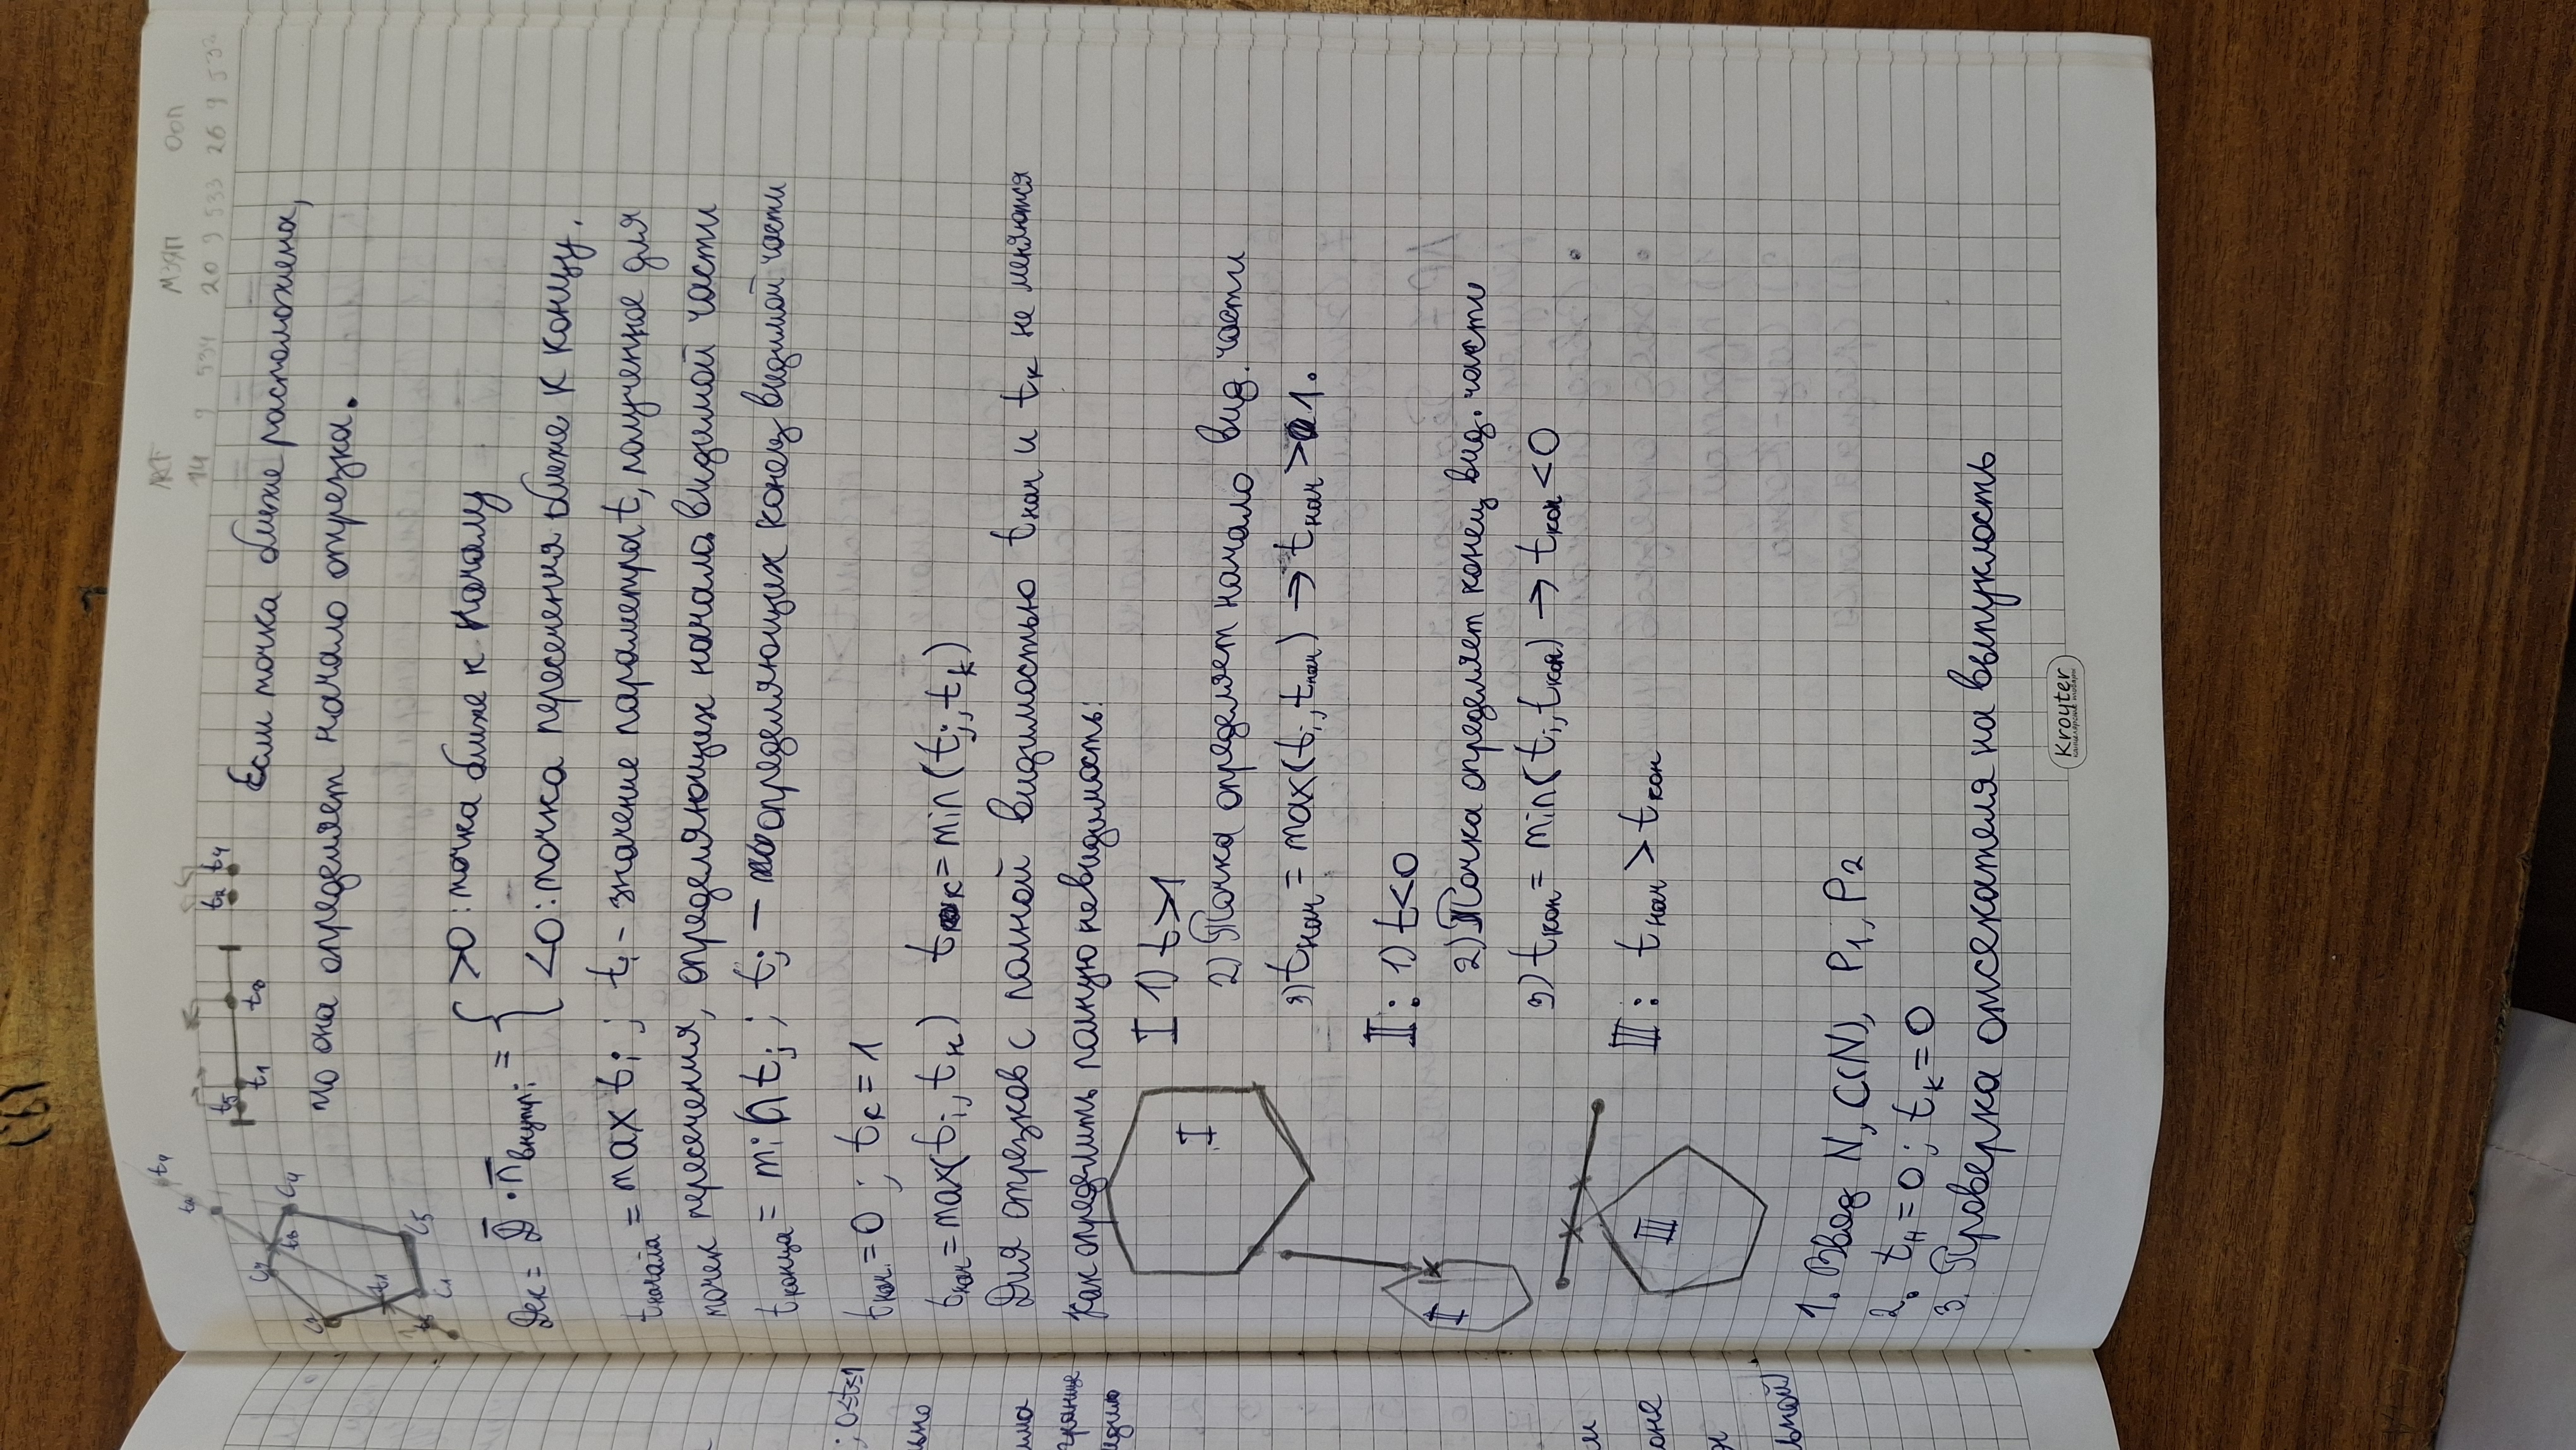 t₄
t₂
t₅ t₁ t₃ t₂ t₄
ЛКГ МЗЯП ООП
14 9 534 20 9 533 26 9 533
C₃ t₃ C₄
C₂
t₁
t₅ C₁ C₅
Если точка ближе расположена,
то она определяет начало отрезка.
Dск = D̄ · n̄внутрi = { >0: точка ближе к началу
<0: точка пересечения ближе к концу.
tначала = max ti ; ti - значение параметра t, полученное для
точек пересечения, определяющих начало видимой части
tконца = min tj ; tj — определяющих конец видимой части
tнач. = 0 ; tк = 1
tнач = max(ti, tн) tк = min(tj, tk)
Для отрезков с полной видимостью tнач и tк не меняются
Как определить полную невидимость:
I
I 1) t>1
2) Точка определяет начало вид. части
3) tнач = max(ti, tнач) → tнач > 1.
II
II: 1) t<0
2) Точка определяет конец вид. части
3) tкон = min(ti, tкон) → tкон < 0
III
III: tнач > tкон
1. Ввод N, C(N), P₁, P₂
2. tн = 0; tк = 0
3. Проверка отсекателя на выпуклость
Kroyter
канцелярские товары
; 0≤t≤1
ьно
има
границе
оне
ьной)